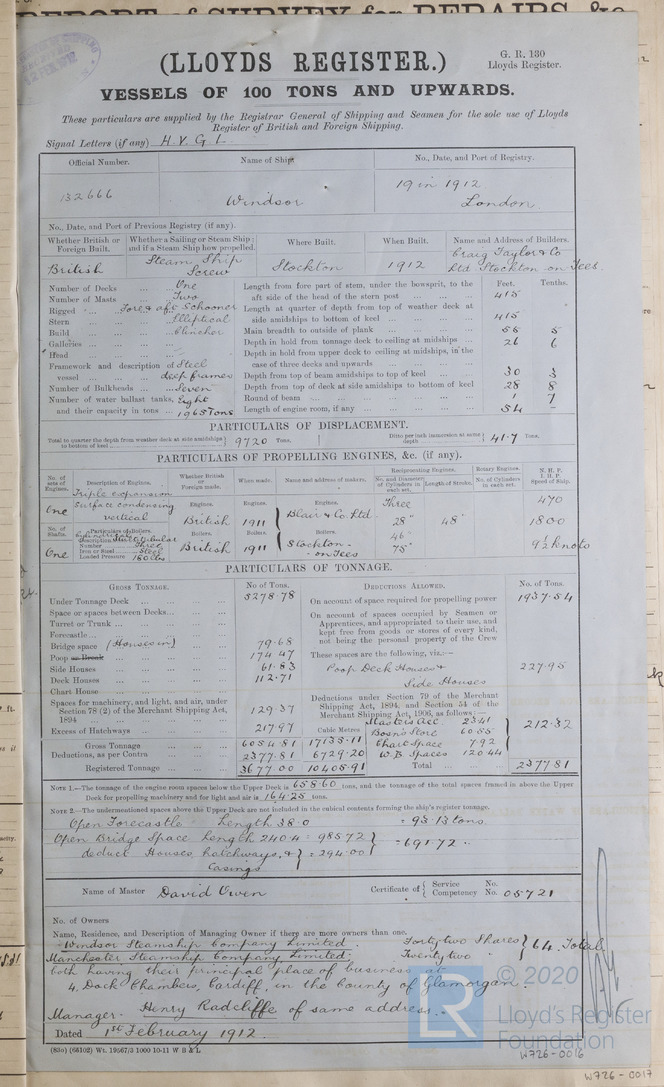 REPORT of SURVEY for REPAIRS, &c
(LLOYDS REGISTER.)
G. R. 130
Lloyds Register.
VESSELS OF 100 TONS AND UPWARDS.
These particulars are supplied by the Registrar General of Shipping and Seamen for the sole use of Lloyds
Register of British and Foreign Shipping.
Signal Letters (if any) H. V. G. L.
Official Number. Name of Ship. No., Date, and Port of Registry.
132666 Windsor 19 in 1912 London
No., Date, and Port of Previous Registry (if any).
Whether British or Foreign Built. Whether a Sailing or Steam Ship; and if a Steam Ship how propelled. Where Built. When Built. Name and Address of Builders.
British Steam Ship Screw Stockton 1912 Craig Taylor & Co Ltd Stockton-on-Tees
Number of Decks One
Number of Masts Two
Rigged Fore & aft Schooner
Stern Elliptical
Build Clincher
Galleries
Head
Framework and description of vessel Steel deep frames
Number of Bulkheads Seven
Number of water ballast tanks, Eight
and their capacity in tons 1965 Tons
Feet. Tenths.
Length from fore part of stem, under the bowsprit, to the aft side of the head of the stern post 415
Length at quarter of depth from top of weather deck at side amidships to bottom of keel 415
Main breadth to outside of plank 55 5
Depth in hold from tonnage deck to ceiling at midships 26 6
Depth in hold from upper deck to ceiling at midships, in the case of three decks and upwards
Depth from top of beam amidships to top of keel 30 3
Depth from top of deck at side amidships to bottom of keel 28 8
Round of beam 1 7
Length of engine room, if any 54 –
PARTICULARS OF DISPLACEMENT.
Total to quarter the depth from weather deck at side amidships to bottom of keel 9720 Tons.
Ditto per inch immersion at same depth 41.7 Tons.
PARTICULARS OF PROPELLING ENGINES, &c. (if any).
No. of sets of Engines. Description of Engines. Whether British or Foreign made. When made. Name and address of makers. Reciprocating Engines. No. and Diameter of Cylinders in each set. Length of Stroke. Rotary Engines. No. of Cylinders in each set. N. H. P. I. H. P. Speed of Ship.
One Triple expansion Surface condensing vertical
Engines. British Engines. 1911 Engines. Blair & Co. Ltd Three 28" 46" 75" 48" 470 1800 9½ knots
No. of Shafts. One
Particulars of Boilers.
Description Multitubular
Number Three
Iron or Steel Steel
Loaded Pressure 180 lbs
Boilers. British Boilers. 1911 Boilers. Stockton-on-Tees
PARTICULARS OF TONNAGE.
GROSS TONNAGE. No of Tons.
Under Tonnage Deck 5278.78
Space or spaces between Decks
Turret or Trunk
Forecastle
Bridge space (Houses in) 79.68
Poop or Break 174.47
Side Houses 61.83
Deck Houses 112.71
Chart House
Spaces for machinery, and light, and air, under Section 78 (2) of the Merchant Shipping Act, 1894 129.37
Excess of Hatchways 217.97
Cubic Metres
Gross Tonnage 6054.81 17135.11
Deductions, as per Contra 2377.81 6729.20
Registered Tonnage 3677.00 10405.91
DEDUCTIONS ALLOWED. No. of Tons.
On account of space required for propelling power 1937.54
On account of spaces occupied by Seamen or Apprentices, and appropriated to their use, and kept free from goods or stores of every kind, not being the personal property of the Crew
These spaces are the following, viz.:—
Poop Deck Houses & Side Houses 227.95
Deductions under Section 79 of the Merchant Shipping Act, 1894, and Section 54 of the Merchant Shipping Act, 1906, as follows:—
Masters Acc. 23.41
Bosn's Store 60.55
Chart Space 7.92
W.B. Spaces 120.44
212.32
Total 2377.81
NOTE 1.—The tonnage of the engine room spaces below the Upper Deck is 658.60 tons, and the tonnage of the total spaces framed in above the Upper
Deck for propelling machinery and for light and air is 164.25 tons.
NOTE 2.—The undermentioned spaces above the Upper Deck are not included in the cubical contents forming the ship's register tonnage.
Open Forecastle Length 38.0 = 93.13 tons.
Open Bridge Space Length 240.4 = 985.72
deduct Houses, hatchways, & Casings = 294.00 = 691.72
Name of Master David Owen Certificate of Service No. Competency No. 05721
No. of Owners
Name, Residence, and Description of Managing Owner if there are more owners than one.
Windsor Steamship Company Limited. Forty two Shares
Manchester Steamship Company Limited. Twenty two " 64. Total
both having their principal place of business at
4, Dock Chambers, Cardiff, in the County of Glamorgan.
Manager. Henry Radcliffe of same address.
Dated 1st February 1912.
(83o) (66102) Wt. 19567/3 1000 10-11 W B & L
© 2020
LR
Lloyd's Register
Foundation
W726-0016
W726-0017